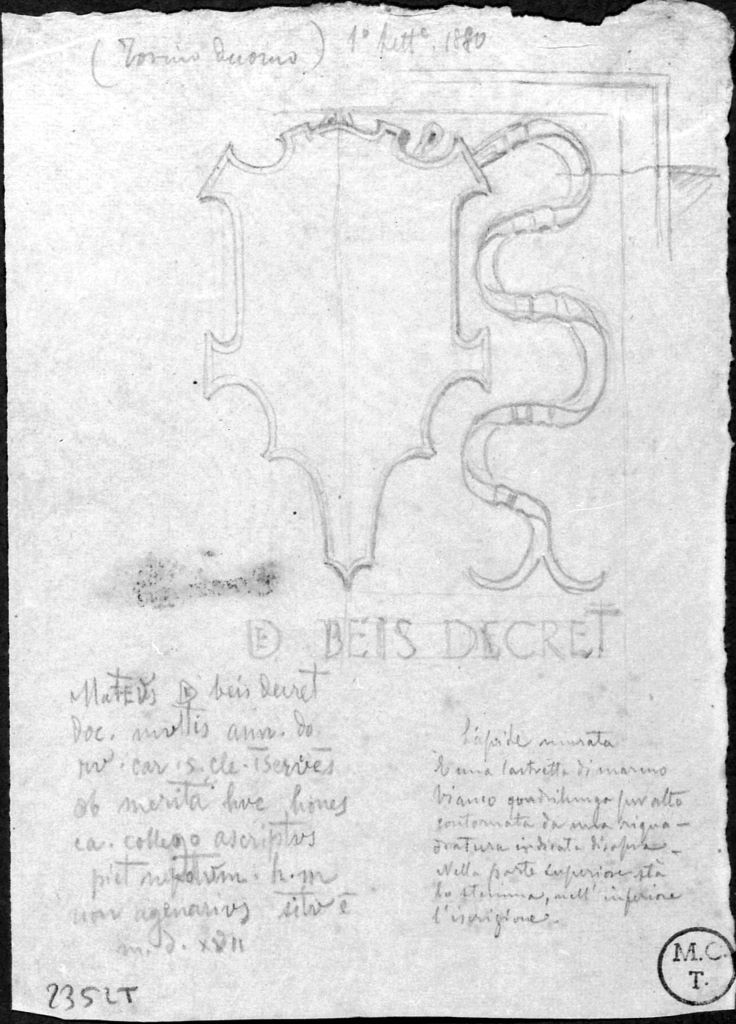 (Torino duomo) 1° Sett.e 1880
DE BEIS DECRET
Mateus DE beis decret
Doc. multis ann. do
car. s. cle. iserves
ob merita huc hones
ca. collego ascriptus
piet nepotum. h. m
non agenarius situ ē
m. d. XVII
Lapide murata
È una lastretta di marmo
bianco quadrilunga per alto
contornata da una riqua-
dratura indicata di sopra.
Nella parte superiore stà
lo stemma, nell'inferiore
l'iscrizione.
235LT
M.C.
T.